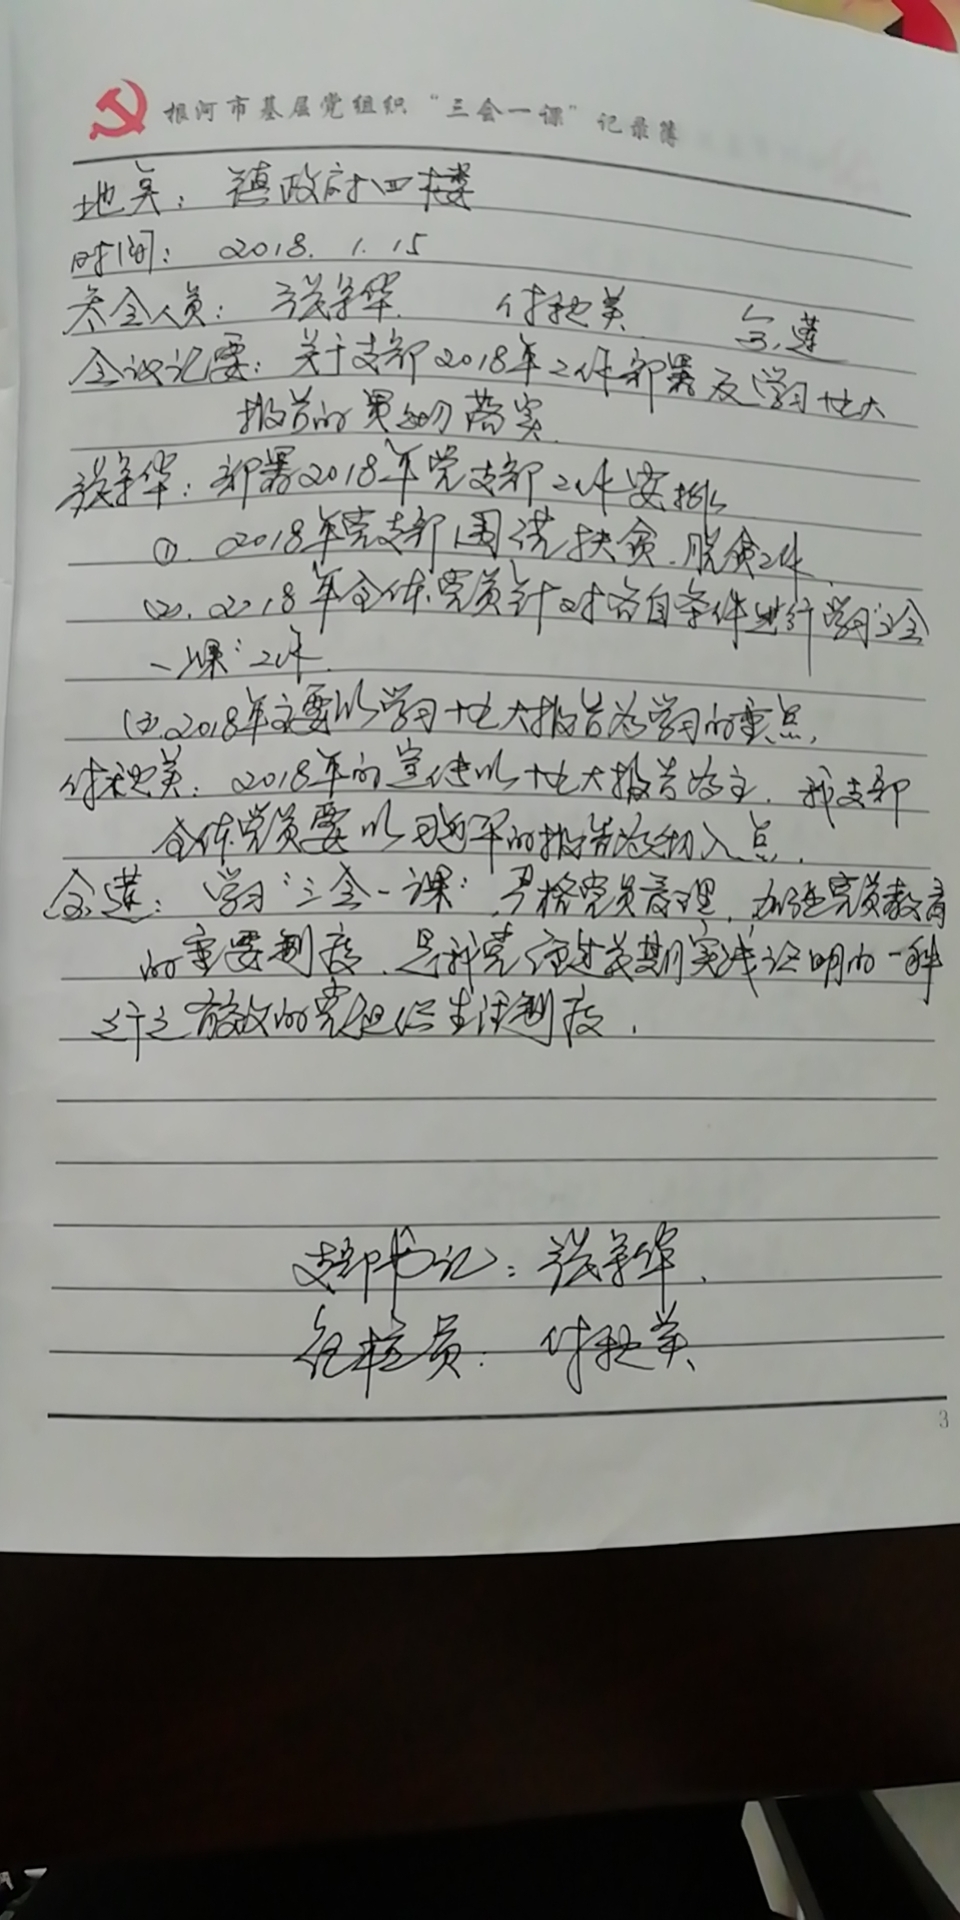 根河市基层党组织“三会一课”记录簿
地点：镇政府四楼
时间：2018.1.15
参会人员：张宇华 付艳英 金莲
会议记要：关于支部2018年工作部署及学习十九大
报告的贯彻落实
张宇华：部署2018年党支部工作安排
①.2018年党支部围绕扶贫.脱贫工作.
(2).2018年全体党员针对各自条件进行学习“三会
一课”工作.
(3).2018年主要以学习十九大报告为学习的重点,
付艳英：2018年的宣传以十九大报告为主.我支部
全体党员要以习近平的报告为切入点.
金莲：学习“三会一课”,严格党员管理,加强党员教育
的重要制度.是我党经过长期实践证明的一种
行之有效的党组织生活制度.
支部书记：张宇华.
员：付艳英
3